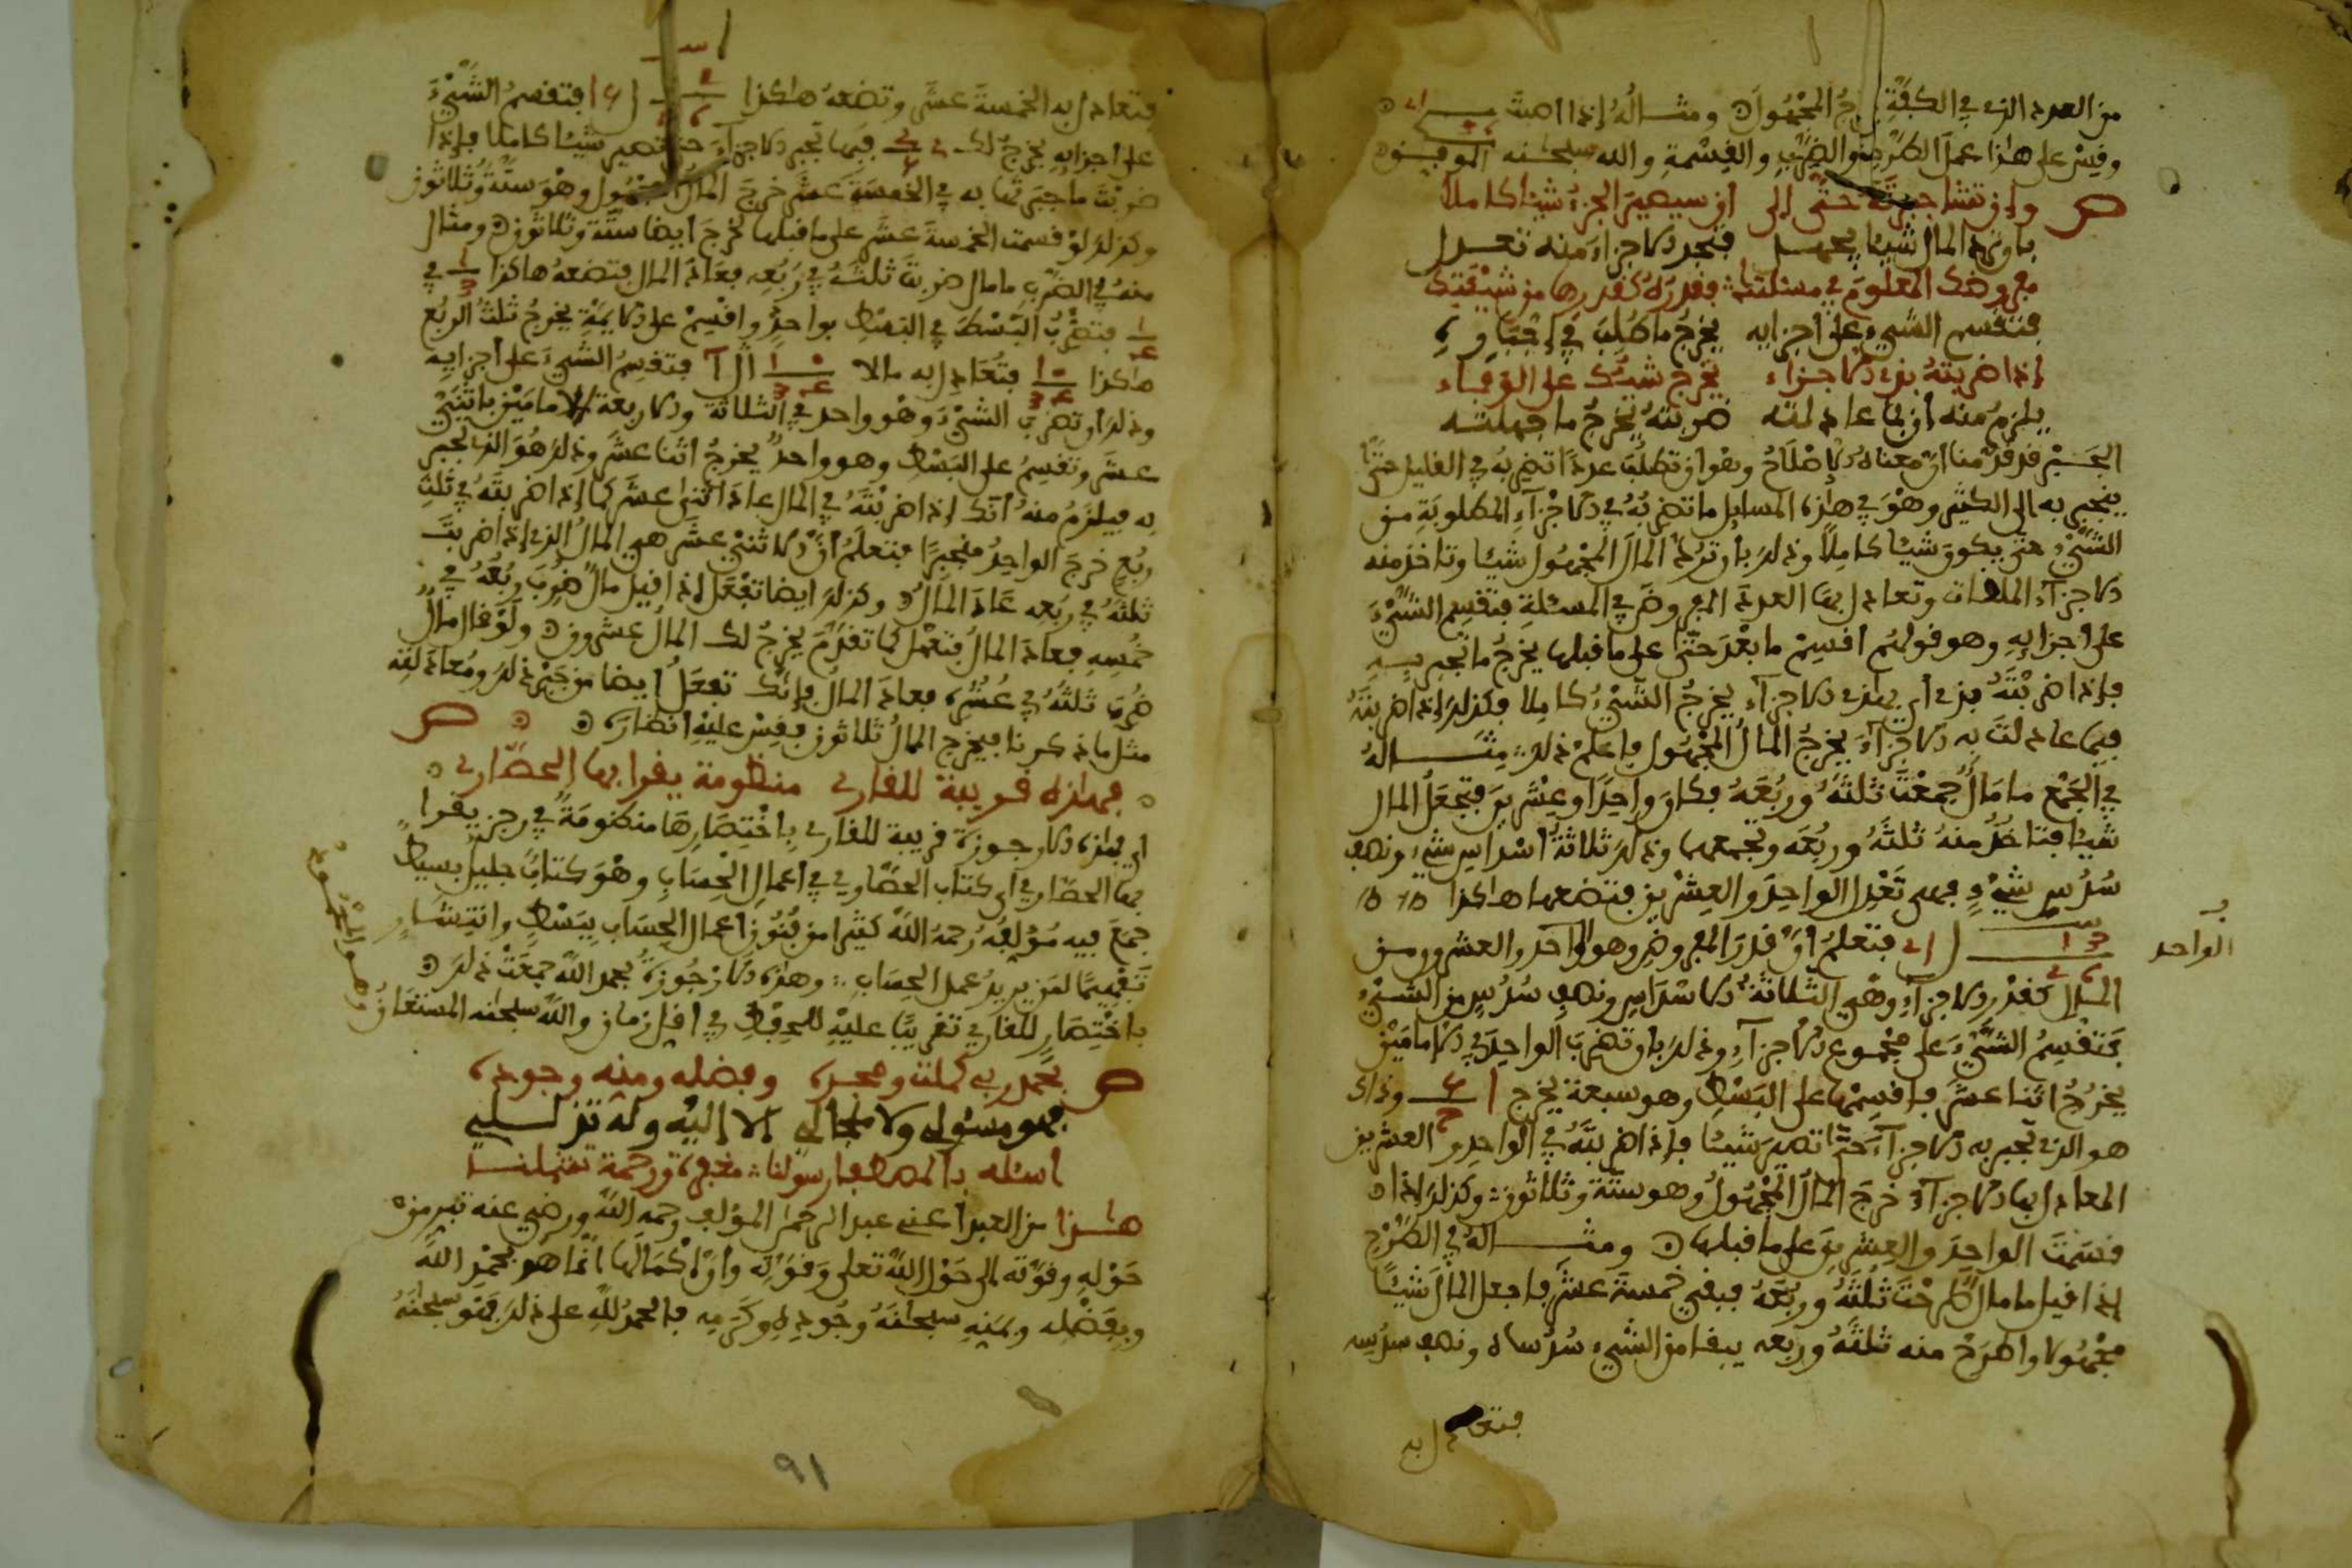 من العدد الذي في الكفة يخرج المجهول ومثاله إذا
وقس على هذا عمل الطرح والضرب والقسمة والله سبحنه الموفق
ص وإن تشا جبرته حتى إلى أن يصير الجزء شيئا كاملا
بأن ترد المال شيئا يجهل فتجد الاجزاء منه تعدل
مفروضك المعلوم في مسئلتك فقدره كقدرها من شيئتك
فتقسم الشيء على أجزائه يخرج ما طلب في
إذا ضربته بذي الأجزاء يخرج شيئك على الوفاء
يلزم منه أن بما عادلته ضربته يخرج ما جهلته
الجبر قد قدمنا أن معناه الإصلاح وهو أن تطلب عددا تضربه في القليل حتى
ينجبر به إلى الكثير وهو في هذه المسايل ما تضربه في الأجزاء المطلوبة من
الشيء حتى يكون شيئا كاملا وذلك بأن ترد المال المجهول شيئا وتاخذ منه
الأجزاء وتعادل بها العدد المفروض في المسئلة فتقسم الشيء
على أجزايه وهو قولهم اقسم ما بعد حتى على ما قبلها يخرج ما تجبر به
فإذا ضربته في أي هذه الأجزاء يخرج الشيء كاملا فكذلك إذا ضربته
فيما عادلت به الأجزاء يخرج المال المجهول فاعلم ذلك مثاله
في الجمع ما مال جمعت ثلثه وربعه فكان واحدا وعشرين فتجعل المال
شيئا فتاخذ منه ثلثه وربعه وتجمعها وذلك ثلاثة أسداس شيء ونصف
سدس شيء فهي تعدل الواحد والعشرين فتضعها هاكذا
فتعلم أن قدر المفروض وهو الواحد والعشرون من
المال كقدر الأجزاء وهي الثلاثة الأسداس ونصف سدس من الشيء
فتقسم الشيء على مجموع الأجزاء وذلك بأن تضرب الواحد في الإمامين
يخرج اثنا عشر فاقسمها على البسط وهو سبعة يخرج وذاك
هو الذي تجبر به الأجزاء حتى تصير شيئا فإذا ضربته في الواحد والعشرين
المعادل بها الأجزاء خرج المال المجهول وهو ستة وثلاثون وكذلك إذا
قسمت الواحد والعشرين على ما قبلها ومثاله في الطرح
إذا قيل ما مال طرحت ثلثه وربعه فبقي خمسة عشر فاجعل المال شيئا
مجهولا واطرح منه ثلثه وربعه يبقا من الشيء سدساه ونصف سدسه
الواحد
فتعادل به
فتعادل به الخمسة عشر وتضعه هاكذا فتقسم الشيء
على أجزايه يخرج لك فبها تجبر الأجزاء حتى تصير شيئا كاملا فإذا
ضربت ما جبرتها به في الخمسة عشر خرج المال المجهول وهو ستة وثلاثون
وكذلك لو قسمت الخمسة عشر على ما قبلها لخرج أيضا ستة وثلاثون ومثال
منه في الضرب ما مال ضربت ثلثه في ربعه فعاد المال فتضعه هاكذا في
فتضرب البسط في البسط بواحد واقسم على الأيمة يخرج ثلث الربع
هاكذا فتعادل به مالا فتقسم الشيء على أجزايه
وذلك أن تضرب الشيء وهو واحد في الثلاثة والأربعة الإمامين باثني
عشر وتقسم على البسط وهو واحد يخرج اثنا عشر وذلك هو الذي تجبر
به فيلزم منه أنك إذا ضربته في المال عاد اثنى عشر كما إذا ضربته في ثلث
ربع خرج الواحد منجبرا فتعلم أن الاثني عشر هي المال الذي إذا ضربت
ثلثه في ربعه عاد المال وكذلك أيضا تفعل إذا قيل مال ضرب ربعه في
خمسه فعاد المال فتعمل كما تقدم يخرج لك المال عشرون ولو قال مال
ضرب ثلثه في عشره فعاد المال فإنك تفعل أيضا من جبر ذلك ومعادلته
مثل ما ذكرنا فيخرج المال ثلاثون فقس عليه أنظاره ص
فهذه قريبة للقاري منظومة يقرا بها الحصاري
أي هذه الارجوزة قريبة للقاري باختصارها منظومة في رجز يقرا
بها الحصاري أي كتاب الحصاري في أعمال الحساب وهو كتاب جليل بسيط
جمع فيه مؤلفه رحمه الله كثيرا من فنون أعمال الحساب ببسط وانتشار
تفهيما لمن يريد عمل الحساب وهذه الأرجوزة بحمد الله جمعت ذلك
باختصار للقاري تقريبا عليه للحفظ في أقل زمان والله سبحنه المستعان
ص بحمد ربي كملت ومجده وفضله ومنه وجوده
فهو مسؤلي ولا لي إلا إليه وله تذللي
أسئله بالمصطفى رسولنا مغفرة ورحمة تشملنا
هذا من العبد أعني عبد الرحمن المؤلف رحمه الله ورضي عنه تبر من
حوله وقوته إلى حول الله تعلى وقوته وأن إكمالها انما هو بحمد الله
وبفضله وبمنه سبحانه وجوده وكرمه فالحمد لله على ذلك فهو سبحنه
٩١